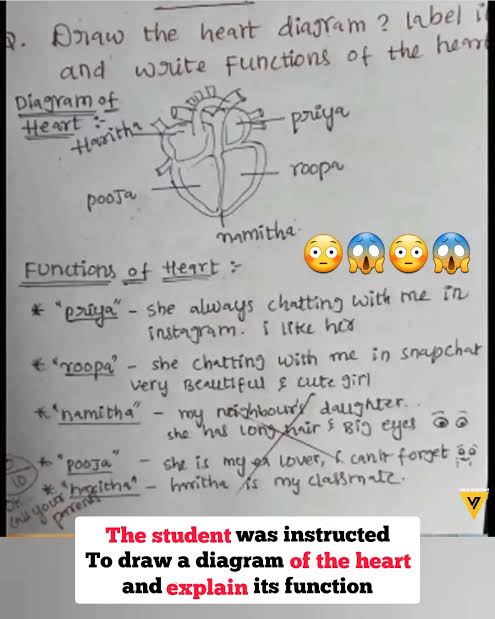 Q. Draw the heart diagram ? label i
and write Functions of the hear
Diagram of
Heart :-
Haritha
priya
roopa
pooja
namitha
Functions of Heart :-
* "priya" - she always chatting with me in
instagram. i like her
* "roopa" - she chatting with me in snapchat
very Beautiful & cute girl
* "namitha" - my neighbour's daughter..
she has long hair & Big eyes
* "pooja" - she is my ex lover, i can't forget
* "haritha" - haritha is my classmate.
10
call your
parents
The student was instructed
To draw a diagram of the heart
and explain its function